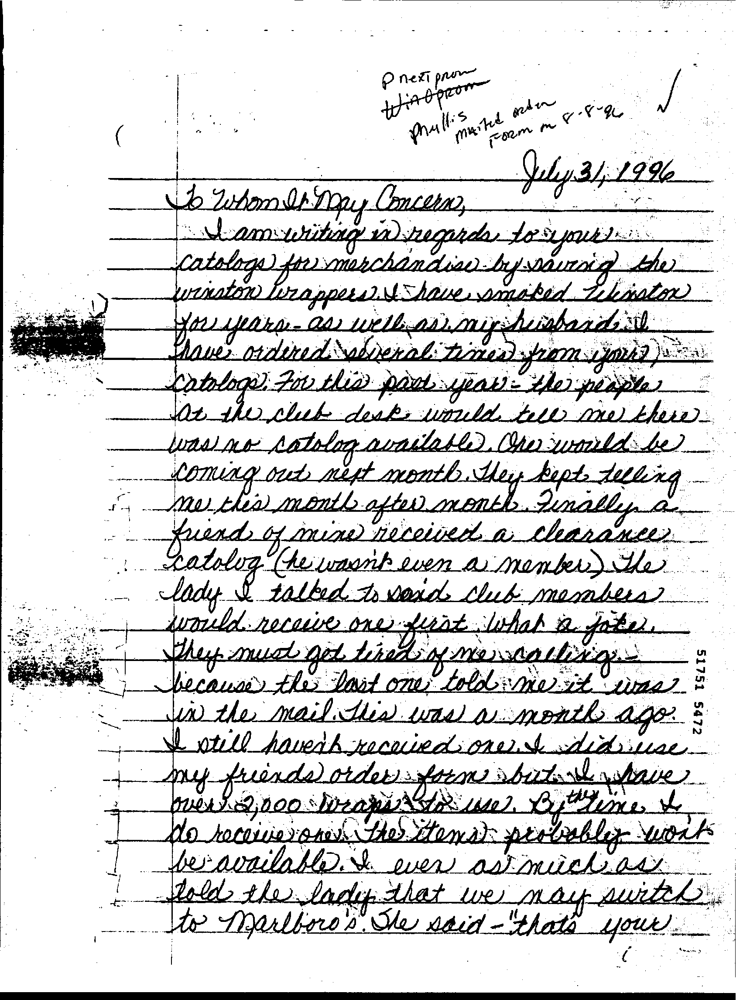 P next prom
Win @ prom
Phyllis
mailed order
Form on 8-8-96
July 31, 1996
To Whom It May Concern,
I am writing in regards to your
catologs for merchandise by saving the
winston wrappers. I have smoked Winston
for years - as well as my husband. I
have ordered several times from your
catologs. For this past year - the people
at the club desk would tell me there
was no catolog available. One would be
coming out next month. They kept telling
me this month after month. Finally a
friend of mine received a clearance
catolog (he wasn't even a member). The
lady I talked to said club members
would receive one first. What a joke.
They must get tired of me calling -
because the last one told me it was
in the mail. This was a month ago.
I still haven't received one. I did use
my friends order form but I have
over 2,000 wraps to use. By the time I
do receive one. The items probably won't
be available. I even as much as
told the lady that we may switch
to Marlboro's. She said - "that's your
51751 5472